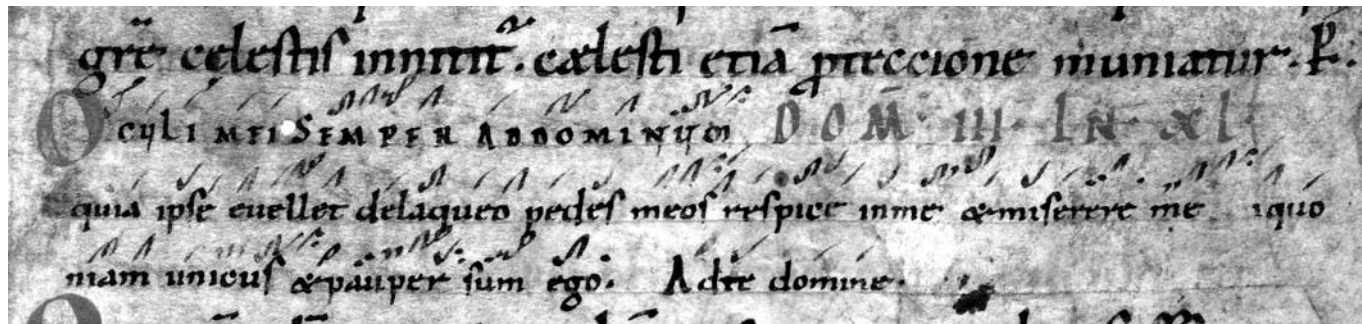 grē cęlestis innitit᷑. cælesti etiā ꝓteccione muniatur. P.
OCULI MEI SEMPER AD DOMINUM DOM̄ III IN XL
quia ipse euellet delaqueo pedes meos respice inme &miserere me iquo
niam unicus &pauper sum ego. Adte domine.